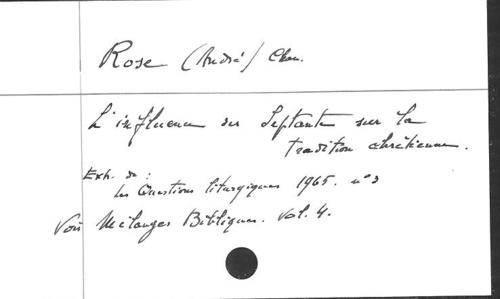 Rose (André) Chan.
L'influence des Septante sur la
tradition chrétienne.
Extr. de :
Les Questions liturgiques 1965. n° 3
Voir Mélanges Bibliques. Vol. 4.